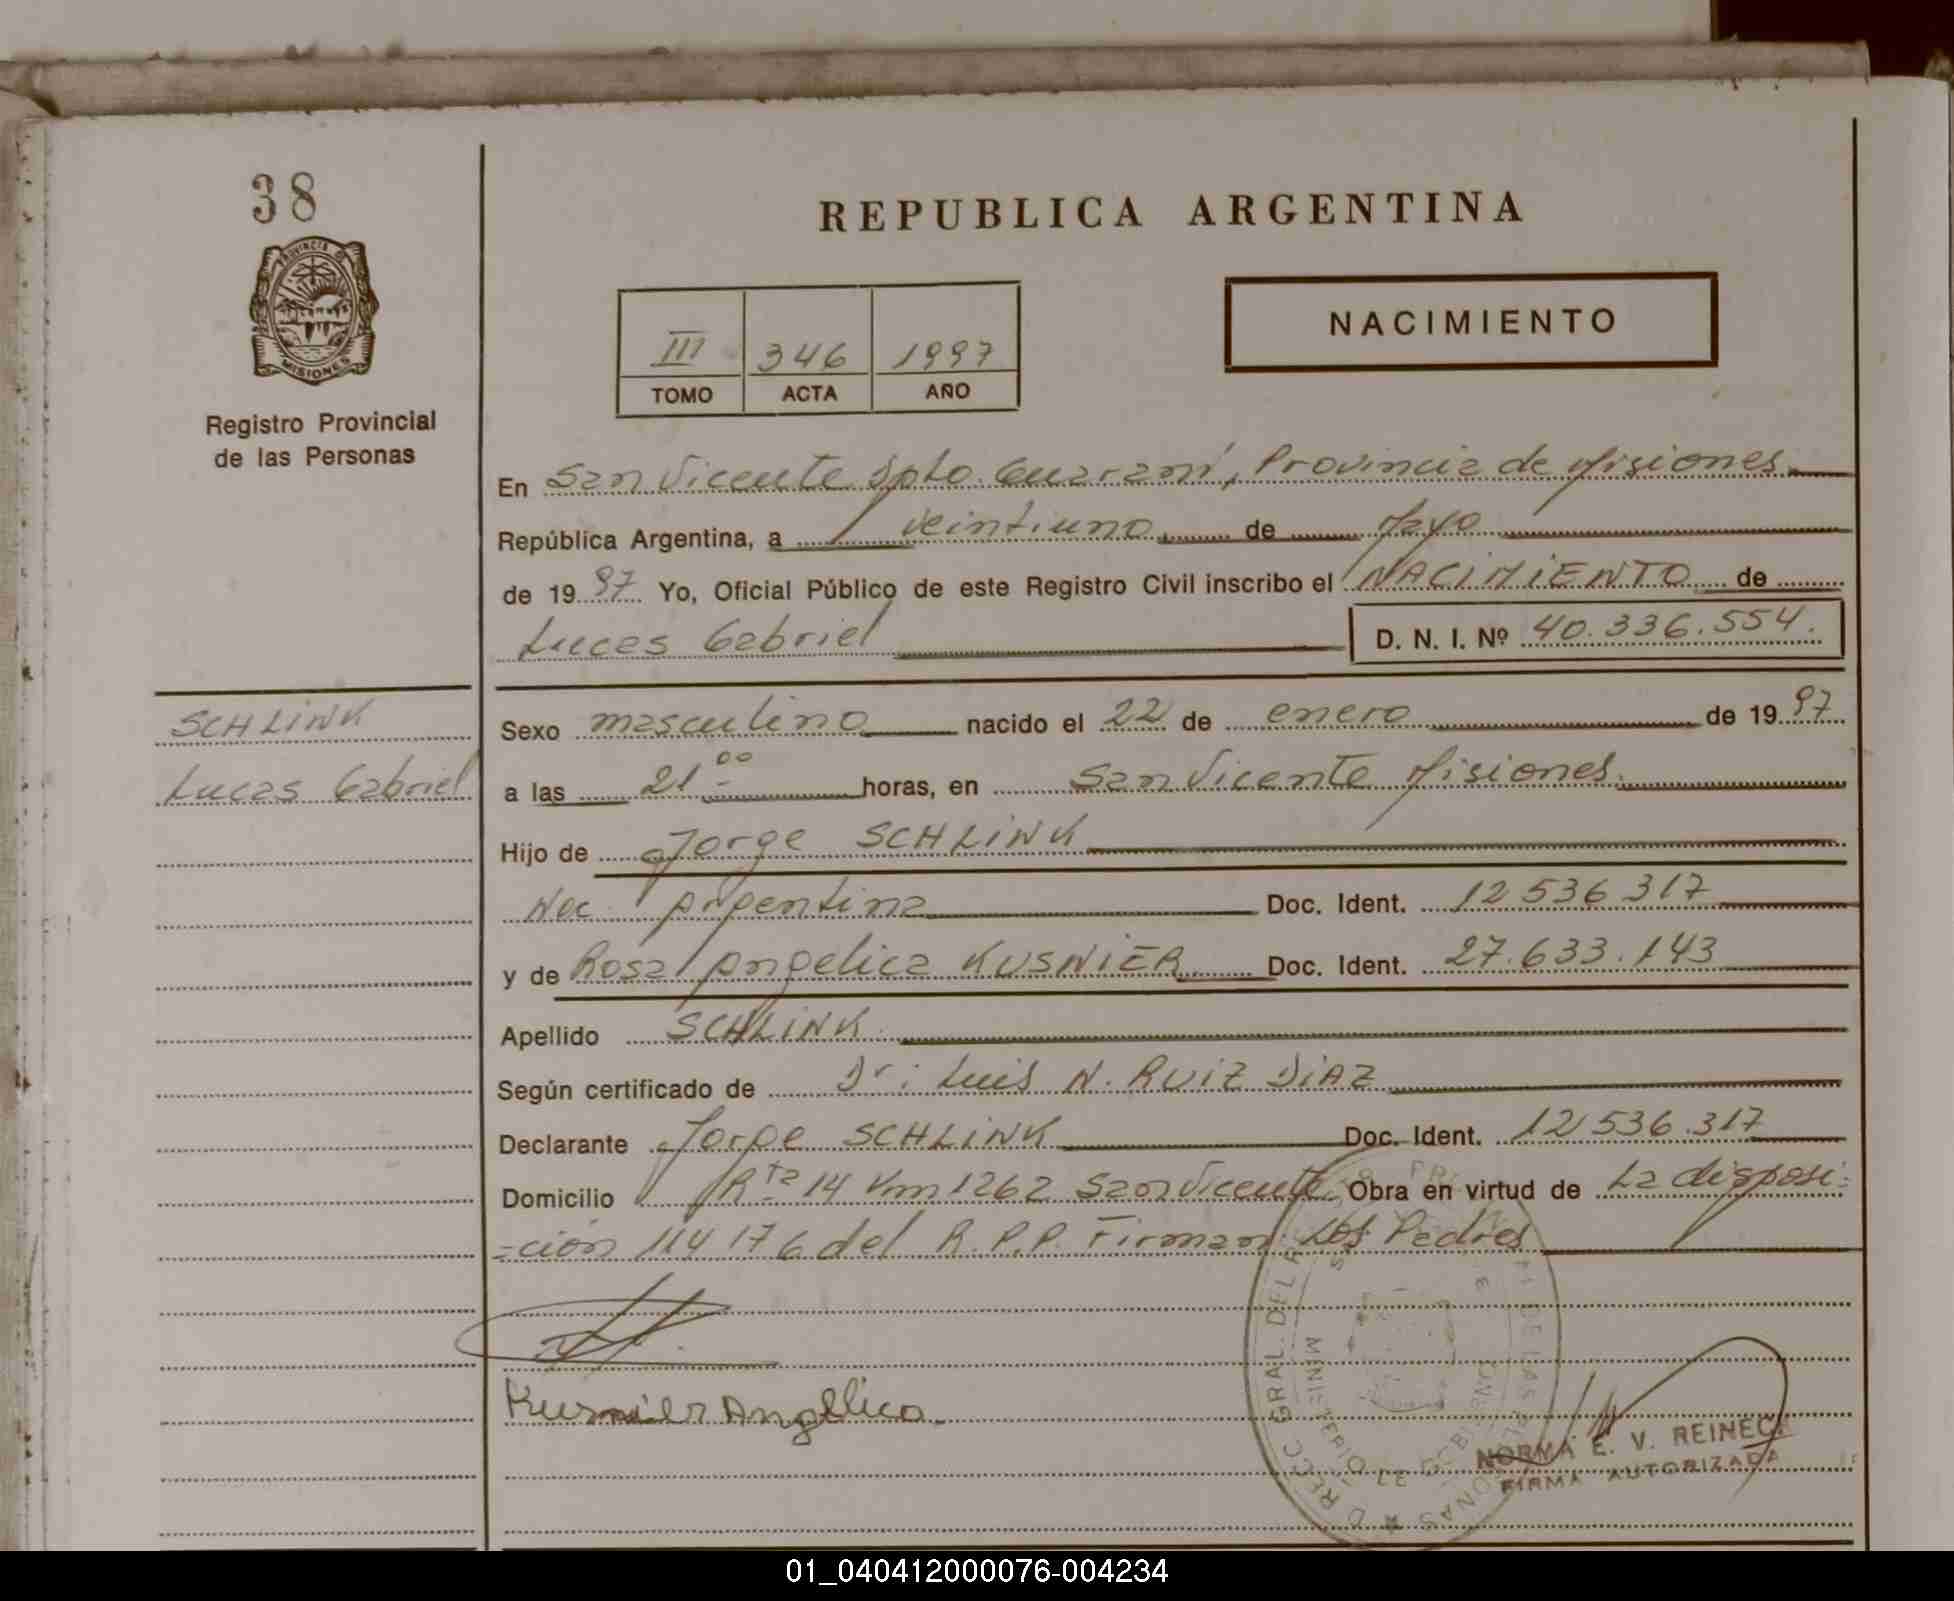 38
PROVINCIA DE
MISIONES
Registro Provincial
de las Personas
REPUBLICA ARGENTINA
III 346 1997
TOMO ACTA AÑO
NACIMIENTO
En San Vicente Dpto. Guaraní, Provincia de Misiones
República Argentina, a veintiuno de Mayo
de 19 97 Yo, Oficial Público de este Registro Civil inscribo el NACIMIENTO de
Lucas Gabriel D. N. I. Nº 40.336.554.
SCHLINK
Lucas Gabriel
Sexo masculino nacido el 22 de enero de 19 97
a las 21 00 horas, en San Vicente Misiones.
Hijo de Jorge SCHLINK
Nac. Argentina Doc. Ident. 12 536 317
y de Rosa Angelica KUSNIER Doc. Ident. 27.633.143
Apellido SCHLINK.
Según certificado de Dr: Luis N. RUIZ DIAZ
Declarante Jorge SCHLINK Doc. Ident. 12 536.317
Domicilio Rta 14 Km 1262 San Vicente. Obra en virtud de La disposi-
-ción 114 176 del R.P.P. Firman Los Padres
Kusnier Angelica.
NORMA E. V. REINEC
FIRMA AUTORIZADA
01_040412000076-004234